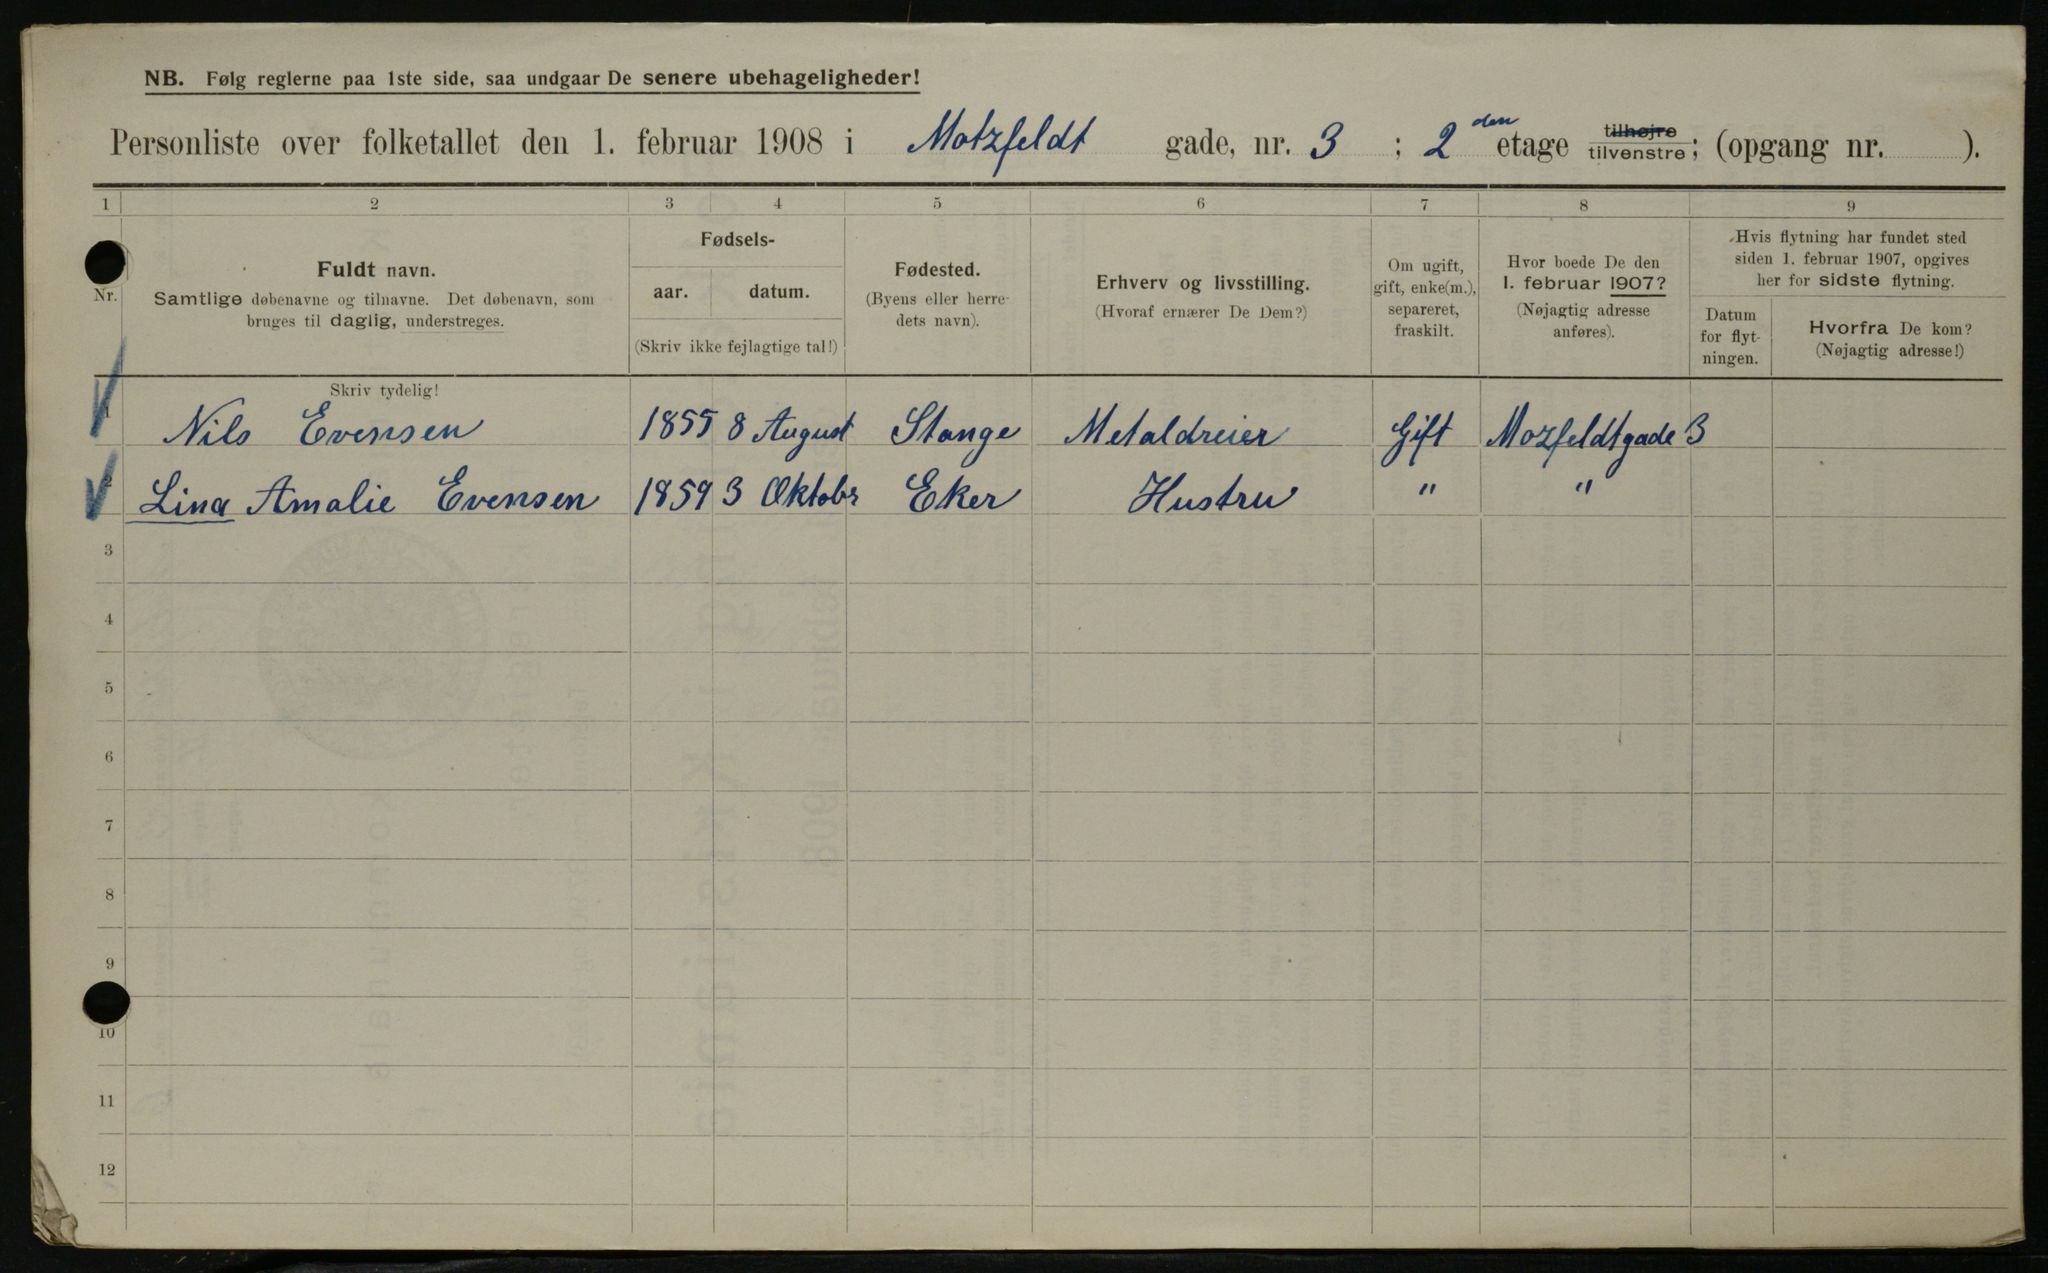 NB. Følg reglerne paa 1ste side, saa undgaar De senere ubehageligheder!
Personliste over folketallet den 1. februar 1908 i Motzfeldt gade, nr. 3 ; 2den etage tilhøjre tilvenstre; (opgang nr. ).
1 2 3 4 5 6 7 8 9
Nr.
Fuldt navn.
Samtlige døbenavne og tilnavne. Det døbenavn, som
bruges til daglig, understreges.
Skriv tydelig!
Fødsels-
aar. datum.
(Skriv ikke fejlagtige tal!)
Fødested.
(Byens eller herre-
dets navn).
Erhverv og livsstilling.
(Hvoraf ernærer De Dem?)
Om ugift,
gift, enke(m.),
separeret,
fraskilt.
Hvor boede De den
1. februar 1907?
(Nøjagtig adresse
anføres).
Hvis flytning har fundet sted
siden 1. februar 1907, opgives
her for sidste flytning.
Datum
for flyt-
ningen.
Hvorfra De kom?
(Nøjagtig adresse!)
1 Nils Evensen 1855 8 August Stange Metaldreier Gift Mozfeldtgade 3
2 Lina Amalie Evensen 1859 3 Oktobr Eker Hustru " "
3
4
5
6
7
8
9
10
11
12